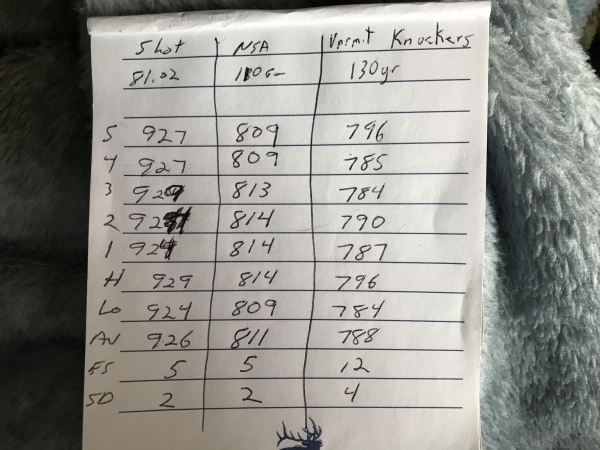 Shot NSA Vermit Knockers
81.02 110Gr 130gr
5 927 809 796
4 927 809 785
3 929 813 784
2 924 814 790
1 924 814 787
H 929 814 796
Lo 924 809 784
AV 926 811 788
ES 5 5 12
SD 2 2 4